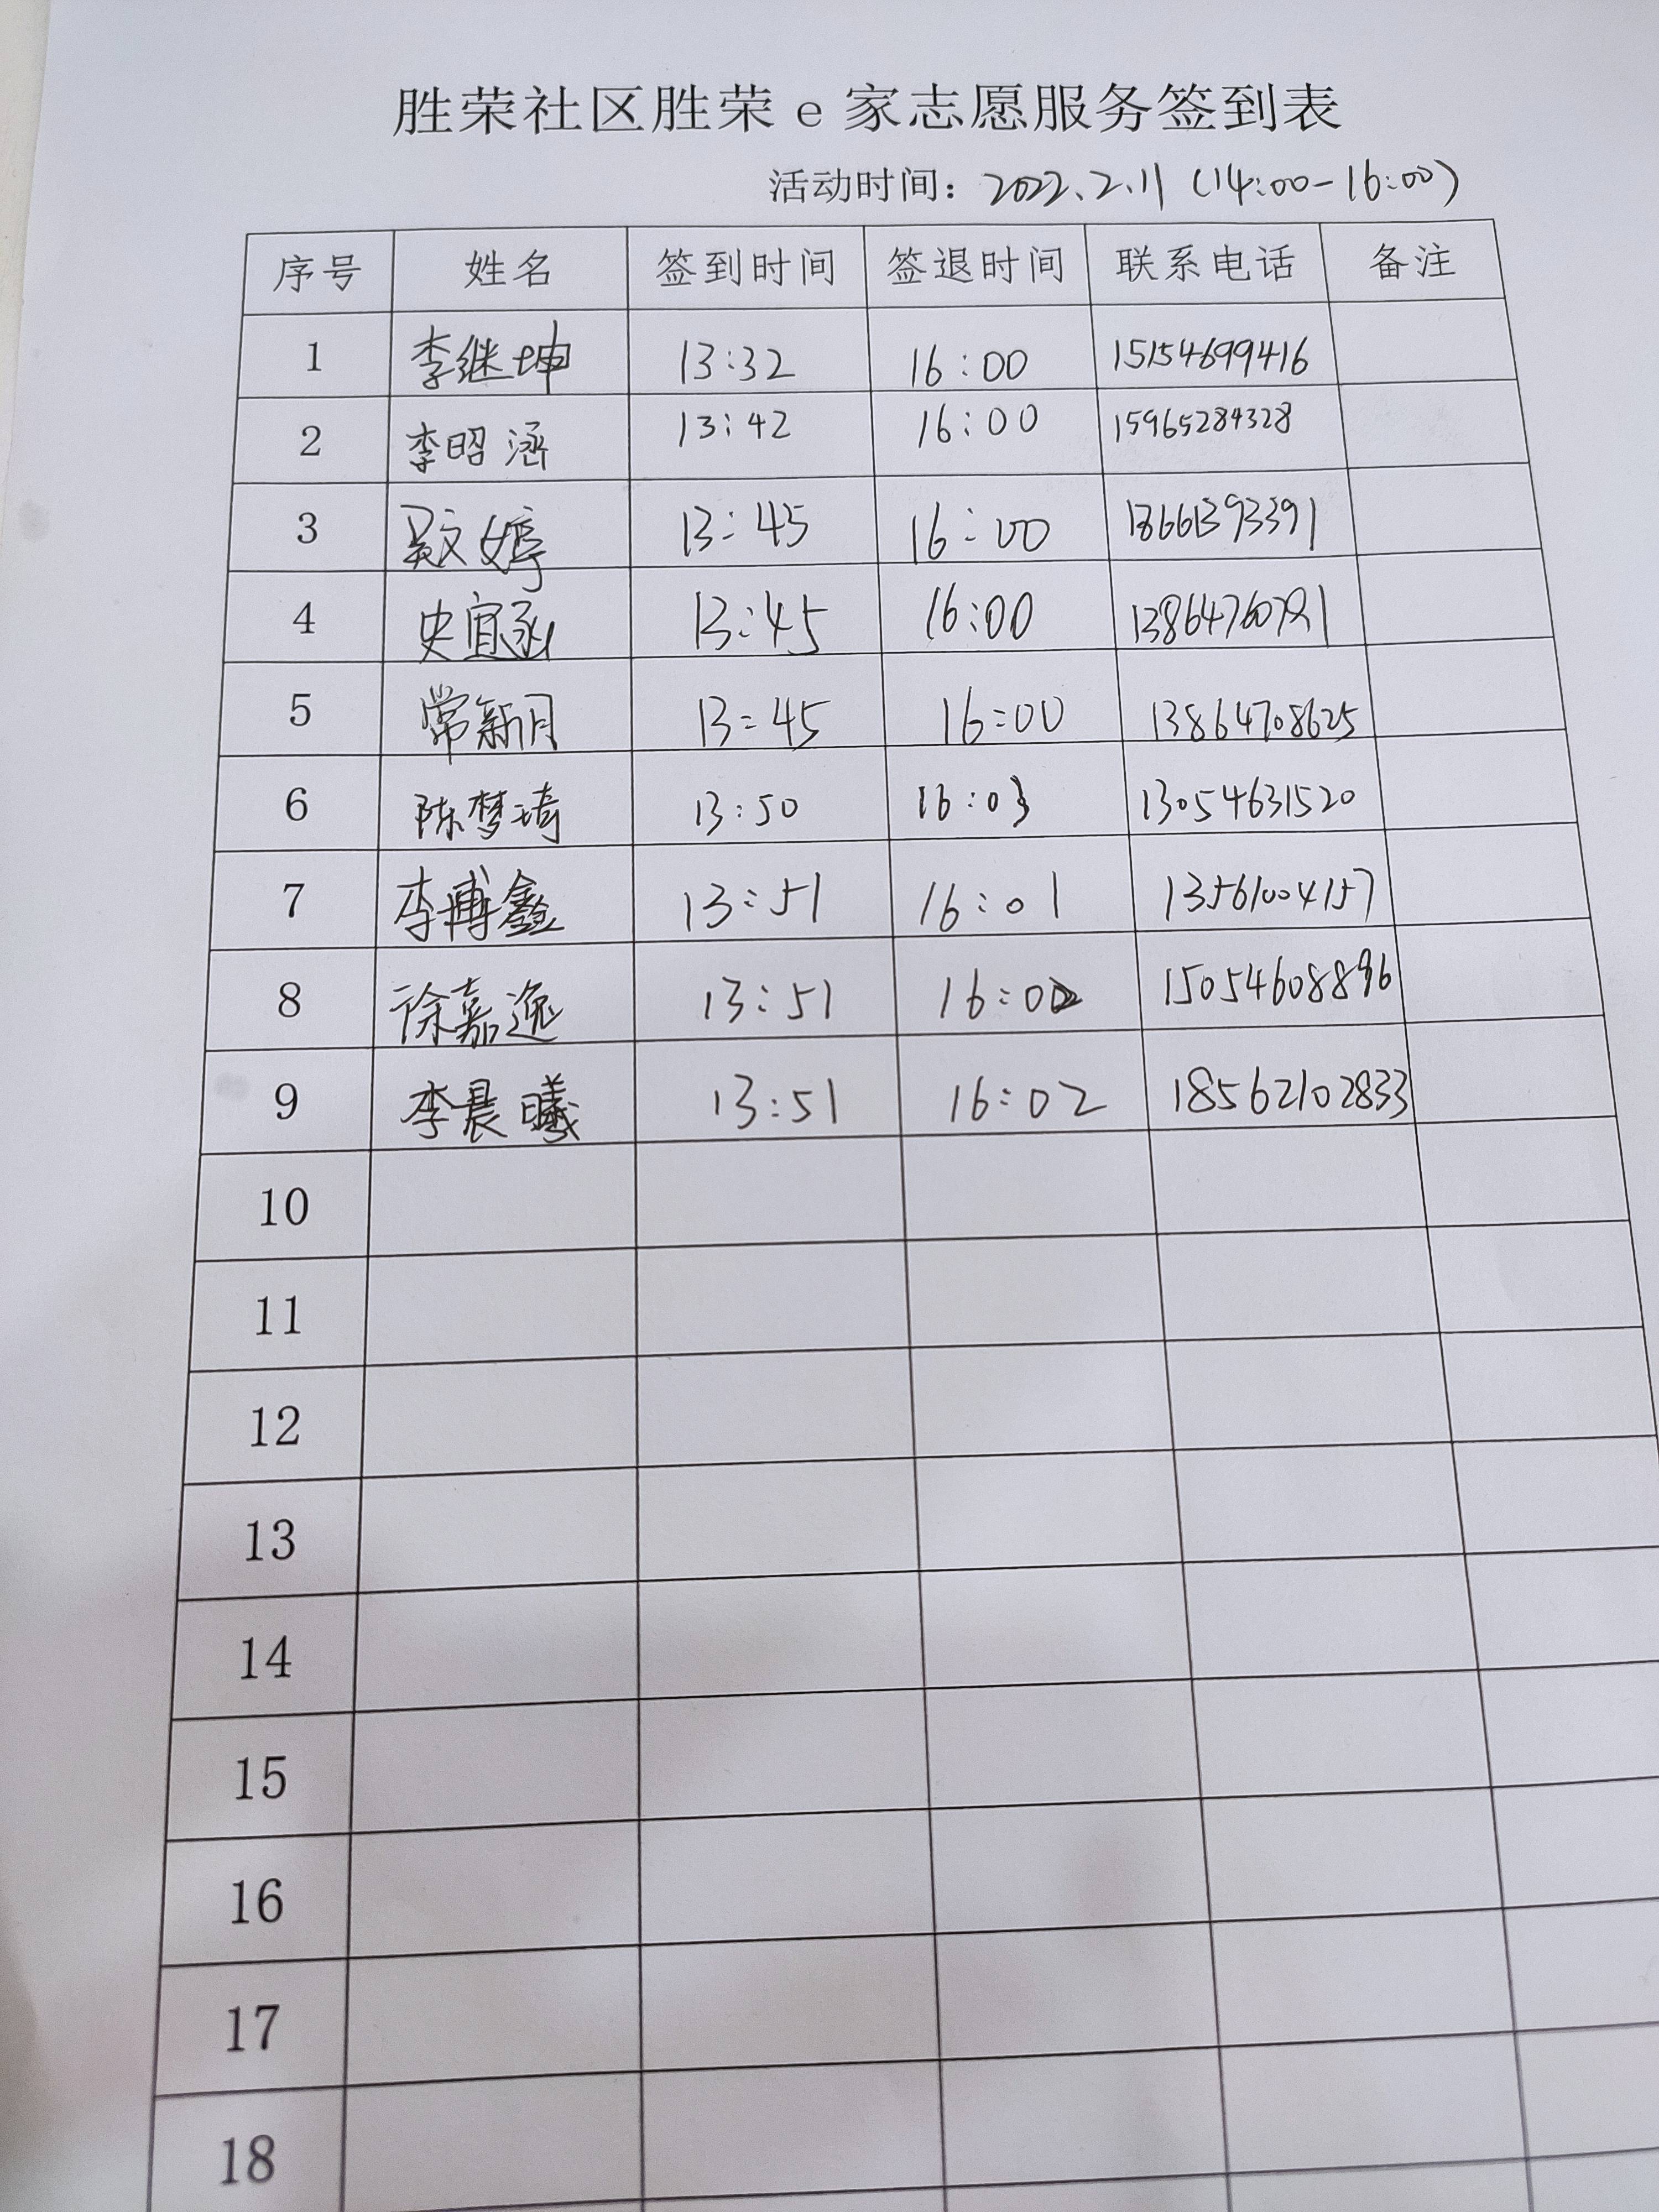 胜荣社区胜荣e家志愿服务签到表
活动时间：2022.2.11 (14:00-16:00)
序号 姓名 签到时间 签退时间 联系电话 备注
1 李继坤 13:32 16:00 15154699416
2 李昭涵 13:42 16:00 15965284328
3 吴文婷 13:45 16:00
4 史宜承 13:45 16:00
5 常新月 13:45 16:00 13864708625
6 陈梦琦 13:50 16:03 13054631520
7 李博鑫 13:51 16:01 13561004157
8 徐嘉逸 13:51 16:02 15054608896
9 李晨曦 13:51 16:02 18562102833
10
11
12
13
14
15
16
17
18